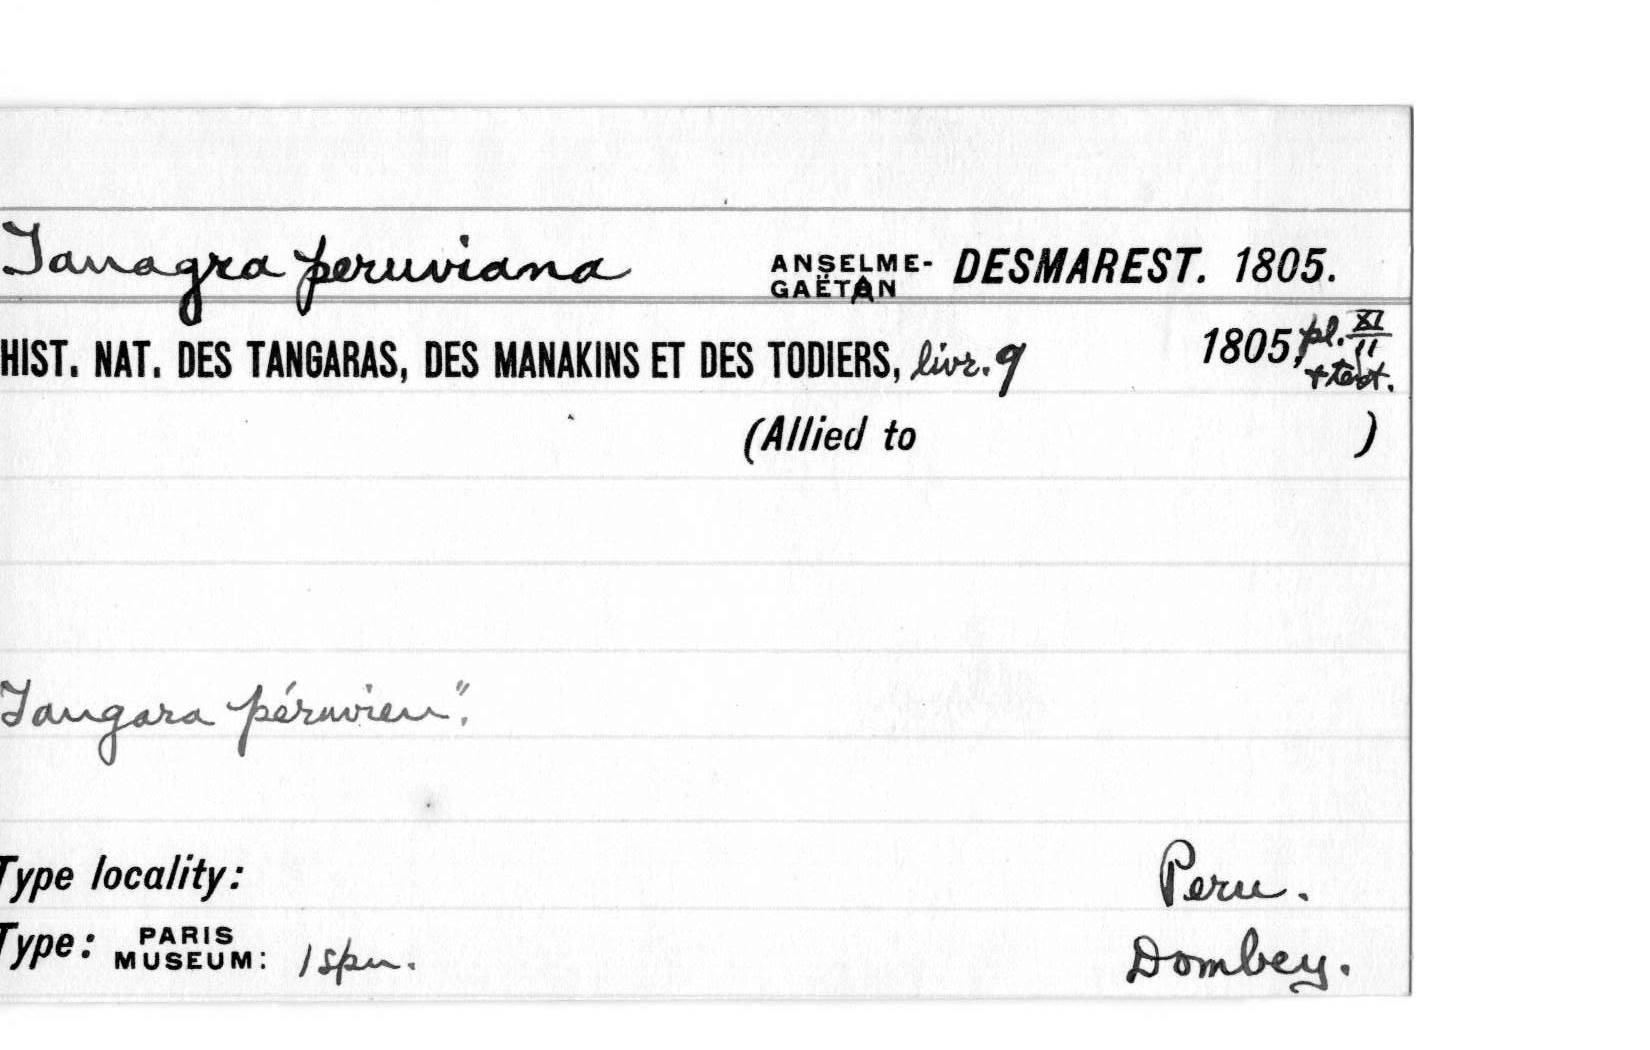 Tanagra peruviana ANSELME-GAËTAN DESMAREST. 1805.
HIST. NAT. DES TANGARAS, DES MANAKINS ET DES TODIERS, livr. 9 1805, pl. XI
+ text.
(Allied to )
Tangara péruvien".
Type locality: Peru.
Type: PARIS MUSEUM: 1 spn. Dombey.